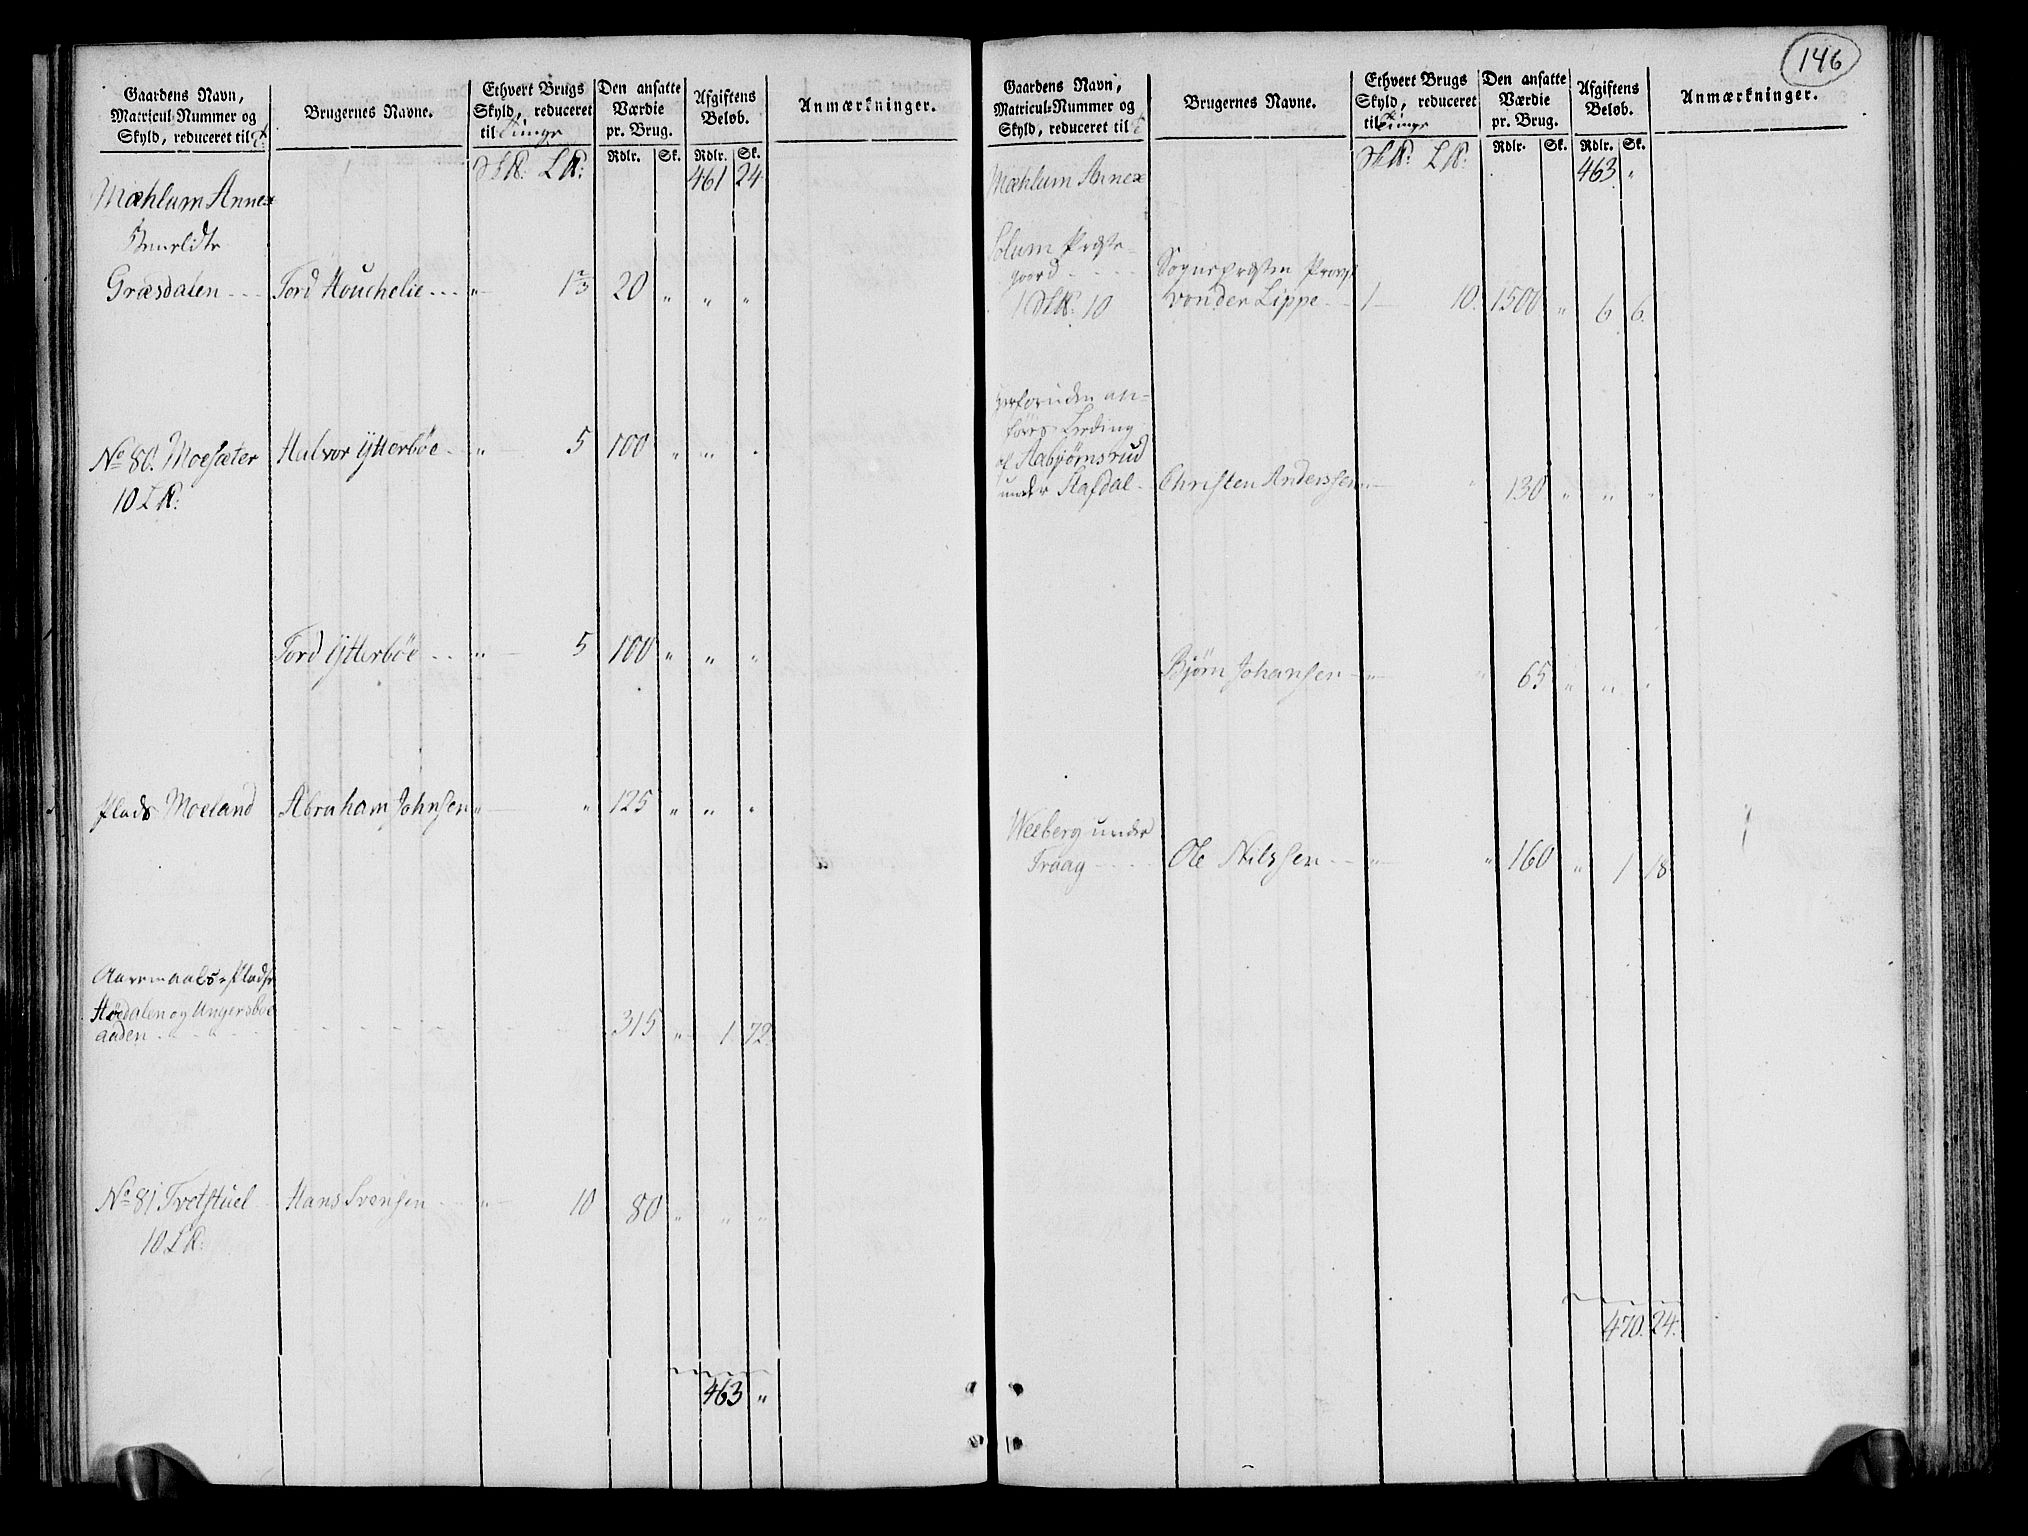 146
Gaardens Navn,
Matricul-Nummer og
Skyld, reduceret til
Brugernes Navne.
Ethvert Brugs
Skyld, reduceret
til Tunge
Den ansatte
Værdie
pr. Brug.
Rdlr. Sk.
Afgiftens
Beløb.
Rdlr. Sk.
Anmærkninger.
461 24
Mæhlum Annex
Græsdalen Tord Houchelie 1 2/3 20 " " "
No 80. Moesæter Halvor Ytterböe " 5 100 " " "
10
Tord Ytterböe " 5 100 " " "
Plads Moeland Abraham Johnsen " " 125 " " "
Høedalen og Ungersboe
aaden 315 " 1 72
No 81 Tvetstuel Hans Svensen " 10 80 " " "
10
463 "
Gaardens Navn,
Matricul-Nummer og
Skyld, reduceret til
Brugernes Navne.
Ethvert Brugs
Skyld, reduceret
til Tunge
Den ansatte
Værdie
pr. Brug.
Rdlr. Sk.
Afgiftens
Beløb.
Rdlr. Sk.
Anmærkninger.
463 "
Mæhlum Annex
Solum Præste-
gaard Sognepræsten Provst
1 10 von der Lippe 1 10 1500 " 6 6
herforuden an-
føres
af Aabjørnsrud
under Stafdal Christen Anderssen " " 130 " " "
Bjørn Johansen " " 65 " " "
Welberg under
Traag Ole Nilssen " " 160 " 1 18
470. 24.